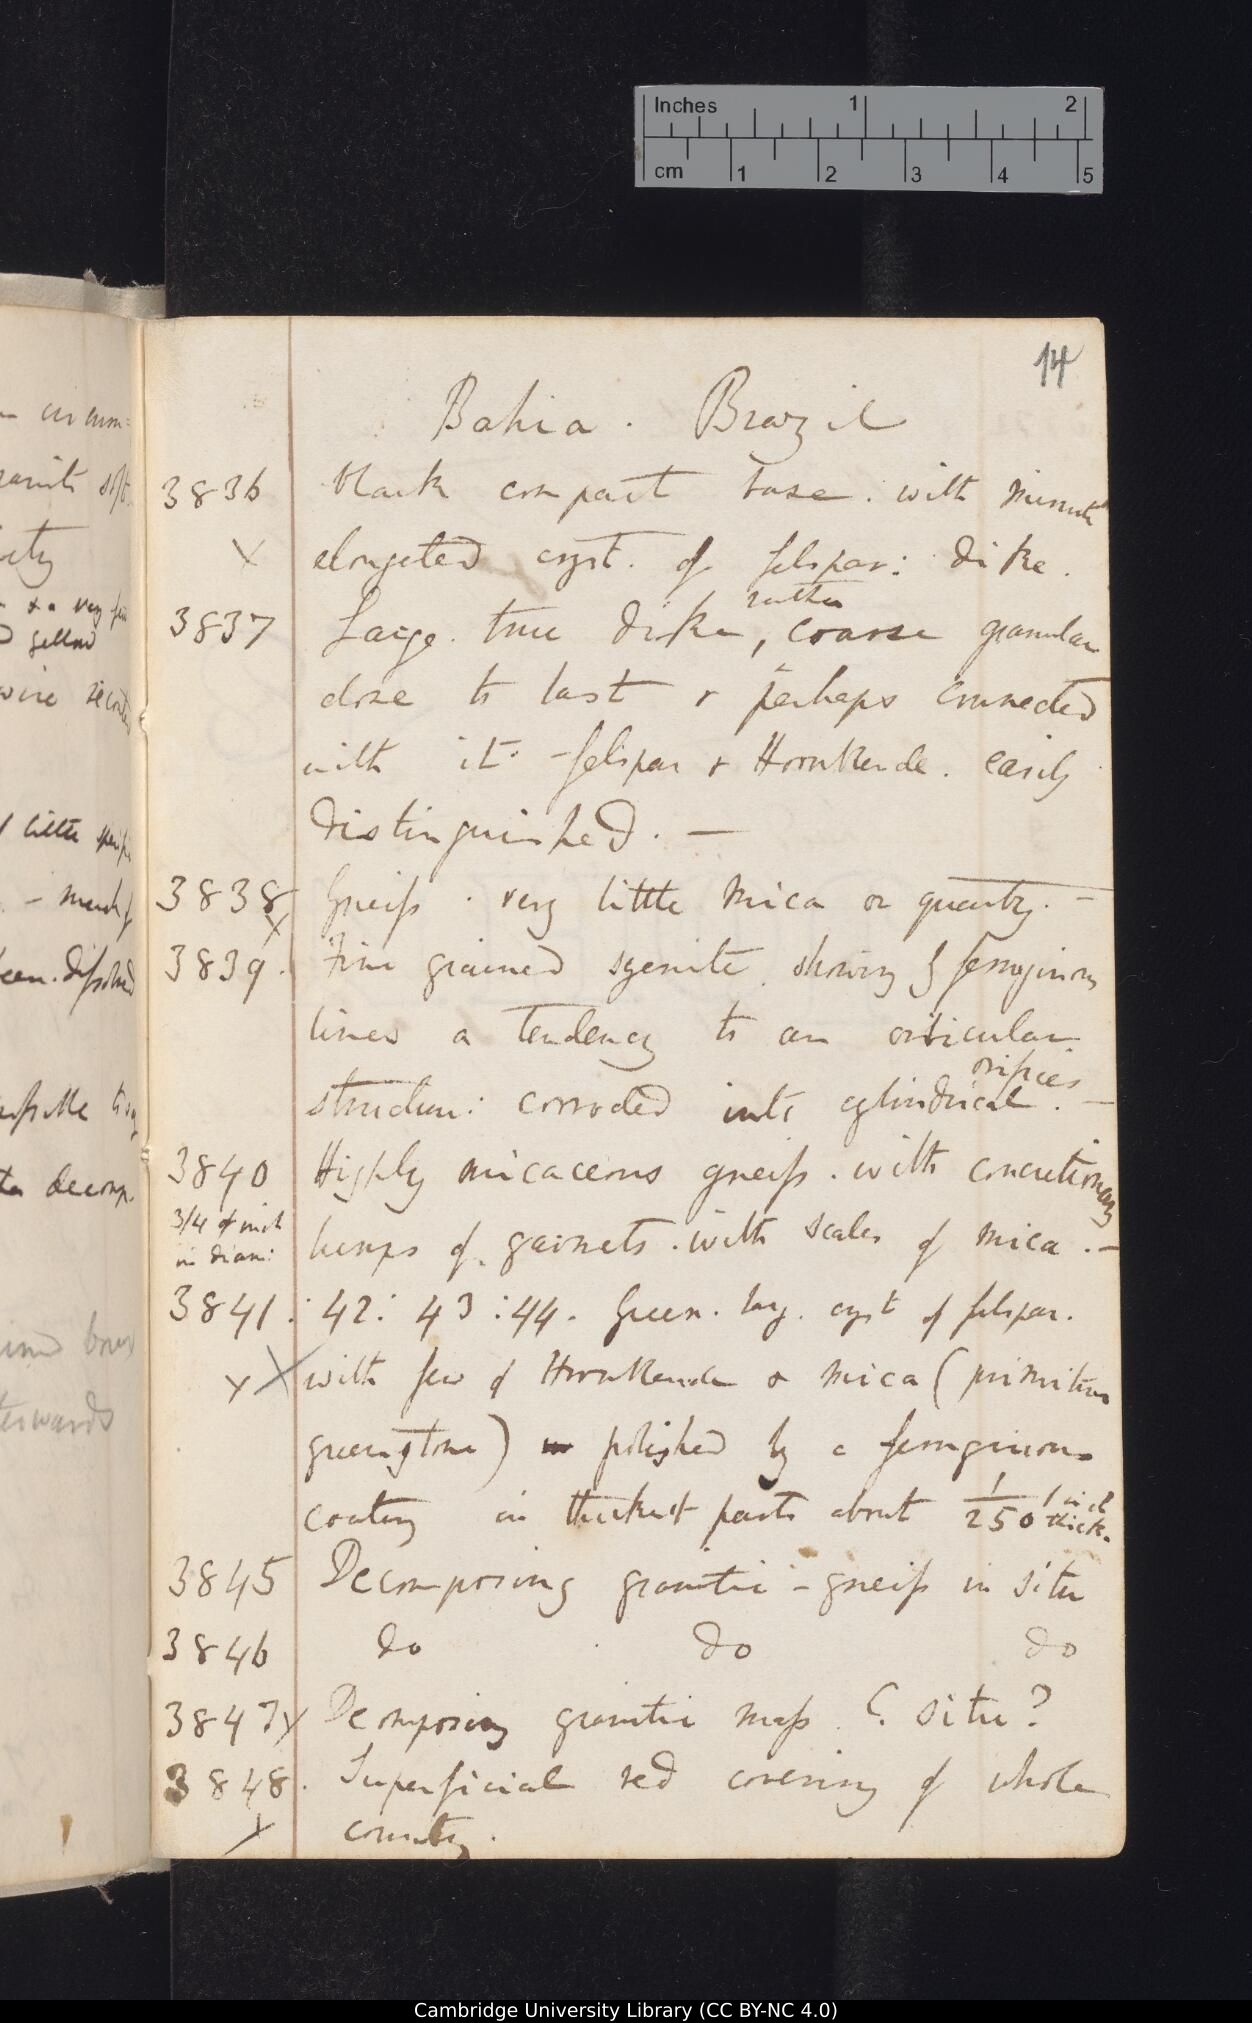 Inches 1 2
cm 1 2 3 4 5
14
Bahia. Brazil
3836 black compact base. with minute
X elongated cryst. of felspar: dike.
rather
3837 Large. true dike, coarse granular
close to last & perhaps connected
with it. - felspar & Hornblende. easily
distinguished. —
3838 Gneiss. very little mica or quartz. —
X
3839. Fine grained syenite. showing by ferruginous
lines a tendency to an orbicular
orifices
structure: corroded into cylindrical. —
3840 Highly micaceous gneiss. with concretionary
3/4 of inch
in diam: lumps of garnets. with scales of mica. —
3841. : 42: 43: 44. Green. lary. cryst of felspar.
X X with few of Hornblende & mica (primitive
greenstone) polished by a ferruginous
coating in thickest parts about 1/250 inch
thick.
3845 Decomposing granitic - gneiss in situ
3846 do do do
3847 X Decomposing granitic mass. (. situ?
3848. Superficial red covering of whole
X country.
circum=
granite soft.
& a very few
yellow
little
- much
been. dissolved
decomp.
terwards
Cambridge University Library (CC BY-NC 4.0)